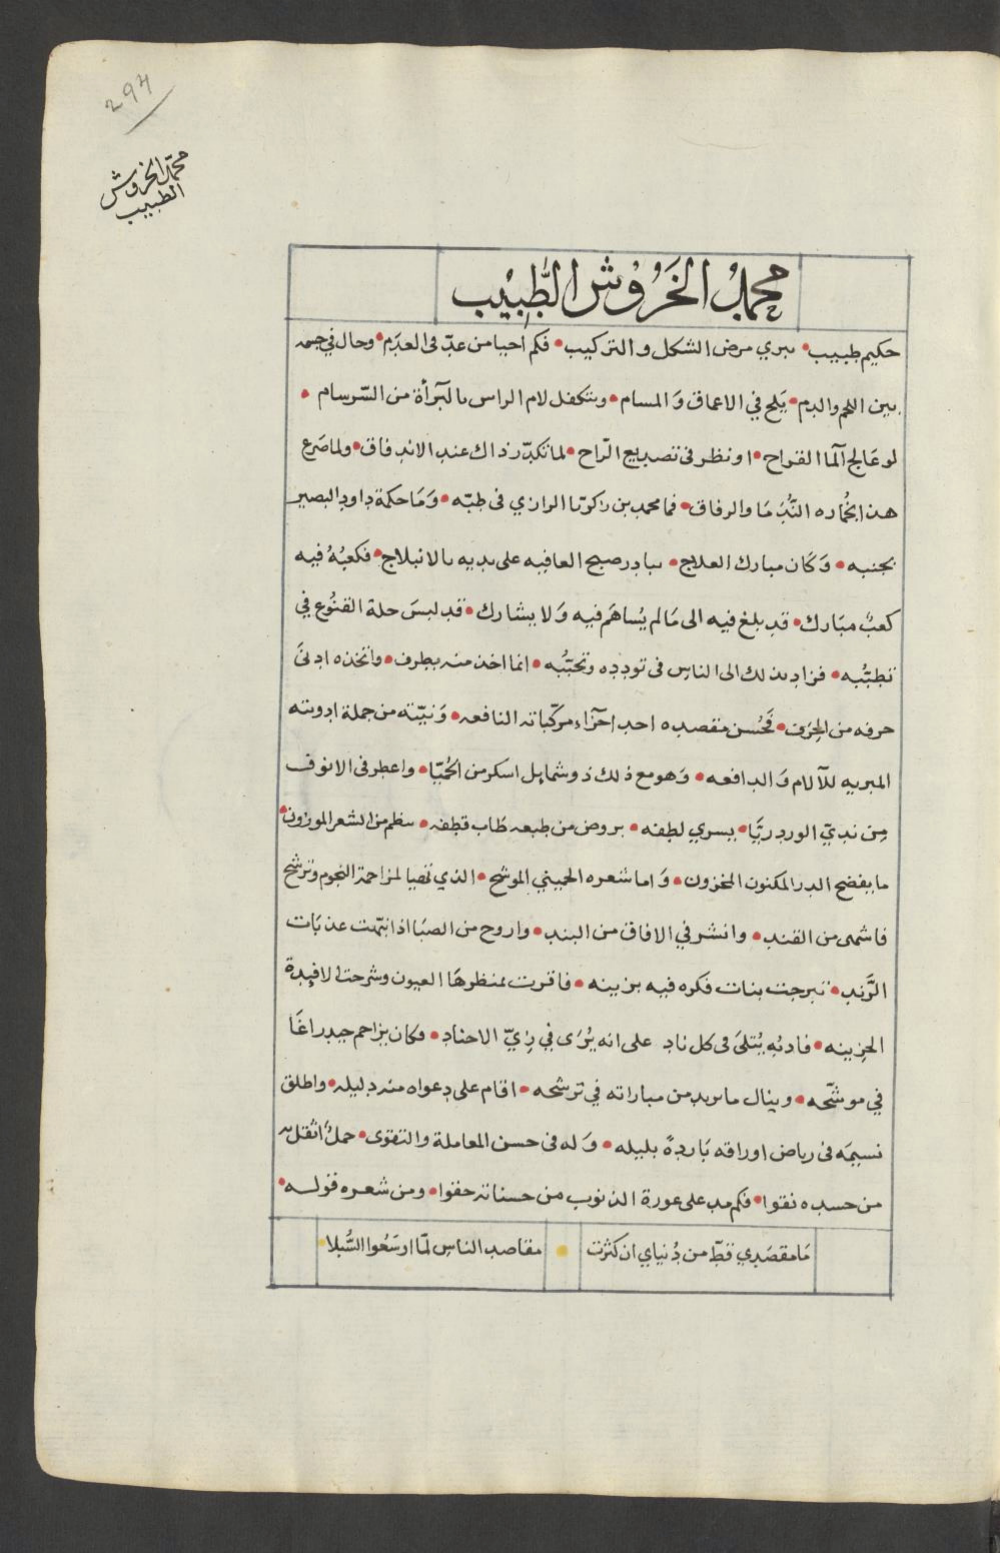 294
محمد الخروش
الطبيب
محمدُ الخَرُوُش الطَّبِيْب
حكيم طبيب • يبري مرض الشكل و التركيب • فكم احيا من عدّ فى العدَم • وحال في جسمه
بين اللحم والدم • يَلج في الاعماق وَ المسام • ويتكفل لام الراس بالبَرأة من السّرسام •
لو عَالج آلما القراح • او نظر فى تصديع الرّاح • لما تكدّر ذاك عند الاندفاق • ولما صَرع
هذا بخُماره النُّدمَا والرفاق • فما محمد بن زكرّيا الرازي فى طبّه • وَمَا حكمة داود البصير
بجنبه • وَكَان مبارك العلاج • يبادر صبح العافيه على يديه بالانبلاج • فكعبُهُ فيه
كعبٌ مبَارك • قد بلغ فيه الى مَا لم يُساهَم فيه وَلا يشارك • قد لبسَ حلة القنُوع في
تطبّبه • فزاد بذلك الى الناس فى تودده وتحبّبُه • انما اخذ منه بطرف • واتخذه ادنىَ
حرفه من الحِرَف • فَحُسن مقصده احد اجزَاء مركّباته النافعه • وَنيّته من جملة ادويته
المبريه للآلام وَ الدافعه • وَهو مع ذلك ذو شمايل اسكر من الحُميّا • واعطر فى الانوف
مِن نديّ الورد ريّا • يسري لطفه • بروض من طبعه طاب قطفه • ينظم من الشعر الموزون •
ما يفضح الدر المكنون المخزون • وَ اما شعره الحميني الموشح • الذي تصيا لمزاحمة النجوم وترشح
فاشهى من القند • وانشر في الافاق من البند • واروح من الصبَا اذا نبّهت عذبَات
الرَّند • تبرجت بنات فكره فيه بزينه • فاقرت بمنظرهَا العيون وشرحت الافيدة
الحزينه • فادبُه يُتلىَ فى كل ناد على انه يُرَى في زيّ الاجناد • وكان يزاحم حيدر اغَا
في موشّحه • وينال ما يريد من مباراته في ترشحه • اقام على دعواه منه دليله • واطلق
نسيمَه فى رياض اوراقه بَاردةً بليله • وَله فى حسن المعاملة والتقوى • حملٌ اثقل به
من حسده نقوا • فكم مد على عورة الذنوب من حسناته حقوا • ومن شعره قولــه •
مَا مقصَدِي قطّ من دُنياي ان كثرت • مقاصد الناس لمّا اوسَعُوا السُّبلا •